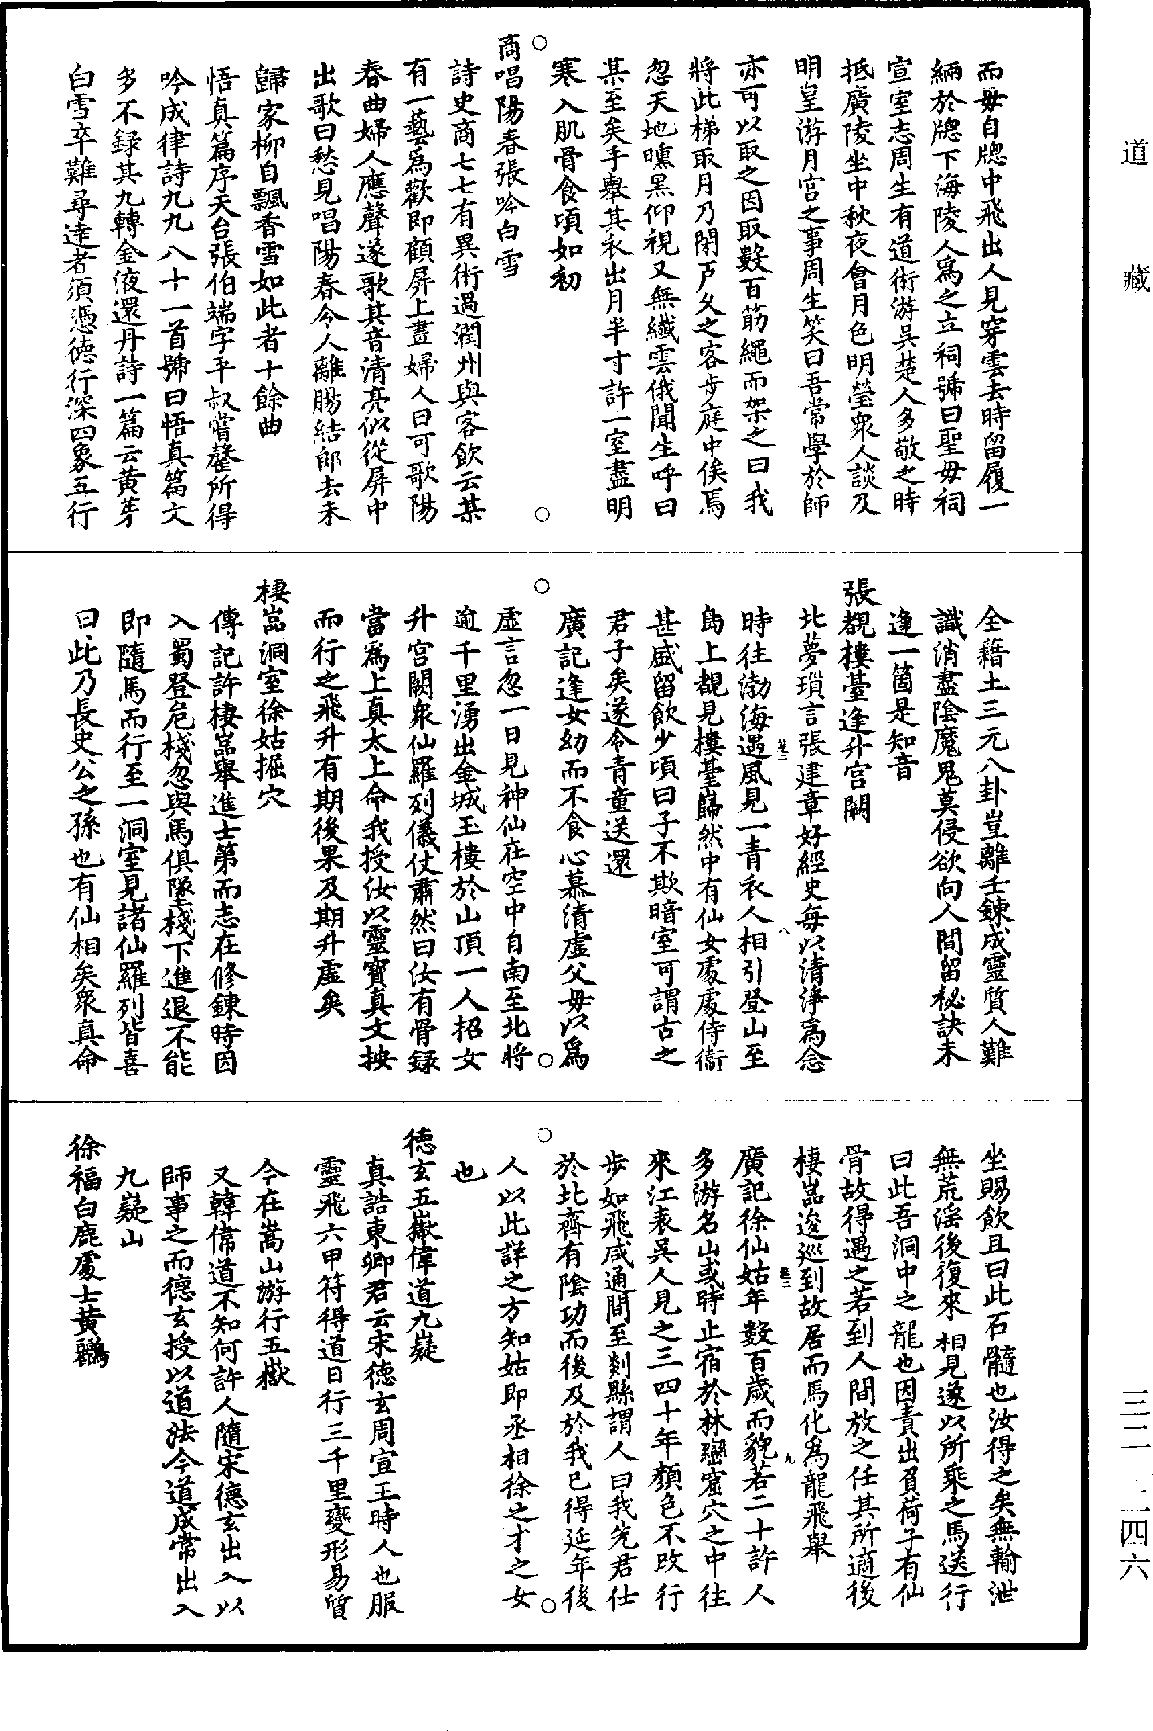 道藏
三二·二四六
而毋自牎中飛出人見穿雲去時留履一
緉於牎下海陵人爲之立祠號曰聖毋祠
宣室志周生有道術游吳楚人多敬之時
抵廣陵坐中秋夜會月色明瑩衆人談及
明皇游月宮之事周生笑曰吾常學於師
亦可以取之因取數百筋繩而架之曰我
將此梯取月乃閉戶久之客步庭中俟焉
忽天地曛黑仰視又無纖雲俄聞生呼曰
某至矣手舉其衣出月半寸許一室盡明
寒入肌骨食頃如初
商唱陽春張吟白雪
詩史商七七有異術過潤州與客飲云某
有一藝爲歡即顧屏上畫婦人曰可歌陽
春曲婦人應聲遂歌其音清亮似從屏中
出歌曰愁見唱陽春令人離腸結郎去未
歸家柳自飄香雪如此者十餘曲
悟真篇序天台張伯端字平叔嘗罄所得
吟成律詩九九八十一首號曰悟真篇文
多不録其九轉金液還丹詩一篇云黃芽
白雪卒難尋達者須憑德行深四象五行
全藉土三元八卦豈離壬鍊成靈質人難
識消盡陰魔鬼莫侵欲向人間留秘訣未
逢一箇是知音
張覩樓臺逢升宮闕
北夢瑣言張建章好經史每以清淨爲念
時往渤海遇風見一青衣人相引登山至
島上覩見樓臺巋然中有仙女處處侍衞
甚盛留飲少頃曰子不欺暗室可謂古之
君子矣遂令青童送還
廣記逢女幼而不食心慕清虛父毋以爲
虛言忽一日見神仙在空中自南至北將
逾千里湧出金城玉樓於山頂一人招女
升宮闕衆仙羅列儀仗肅然曰汝有骨録
當爲上真太上命我授汝以靈寶真文按
而行之飛升有期後果及期升虛矣
棲嵓洞室徐姑掘穴
傳記許棲嵓舉進士第而志在修鍊時因
入蜀登危棧忽與馬俱墜棧下進退不能
即隨馬而行至一洞室見諸仙羅列皆喜
曰此乃長史公之孫也有仙相矣衆真命
坐賜飲且曰此石髓也汝得之矣無輸泄
無荒淫後復來相見遂以所乘之馬送行
曰此吾洞中之龍也因責出負荷子有仙
骨故得遇之若到人間放之任其所適後
棲嵓逡巡到故居而馬化爲龍飛舉
廣記徐仙姑年數百歲而貌若二十許人
多游名山或時止宿於林巒窟穴之中往
來江表吳人見之三四十年顏色不改行
步如飛咸通間至剡縣謂人曰我先君仕
於北齊有陰功而後及於我已得延年後
人以此詳之方知姑即丞相徐之才之女
也
德玄五嶽偉道九嶷
真誥東卿君云宋德玄周宣王時人也服
靈飛六甲符得道日行三千里變形易質
今在嵩山游行五嶽
又韓偉道不知何許人隨宋德玄出入以
師事之而德玄授以道法今道成常出入
九嶷山
徐福白鹿處士黃鸝